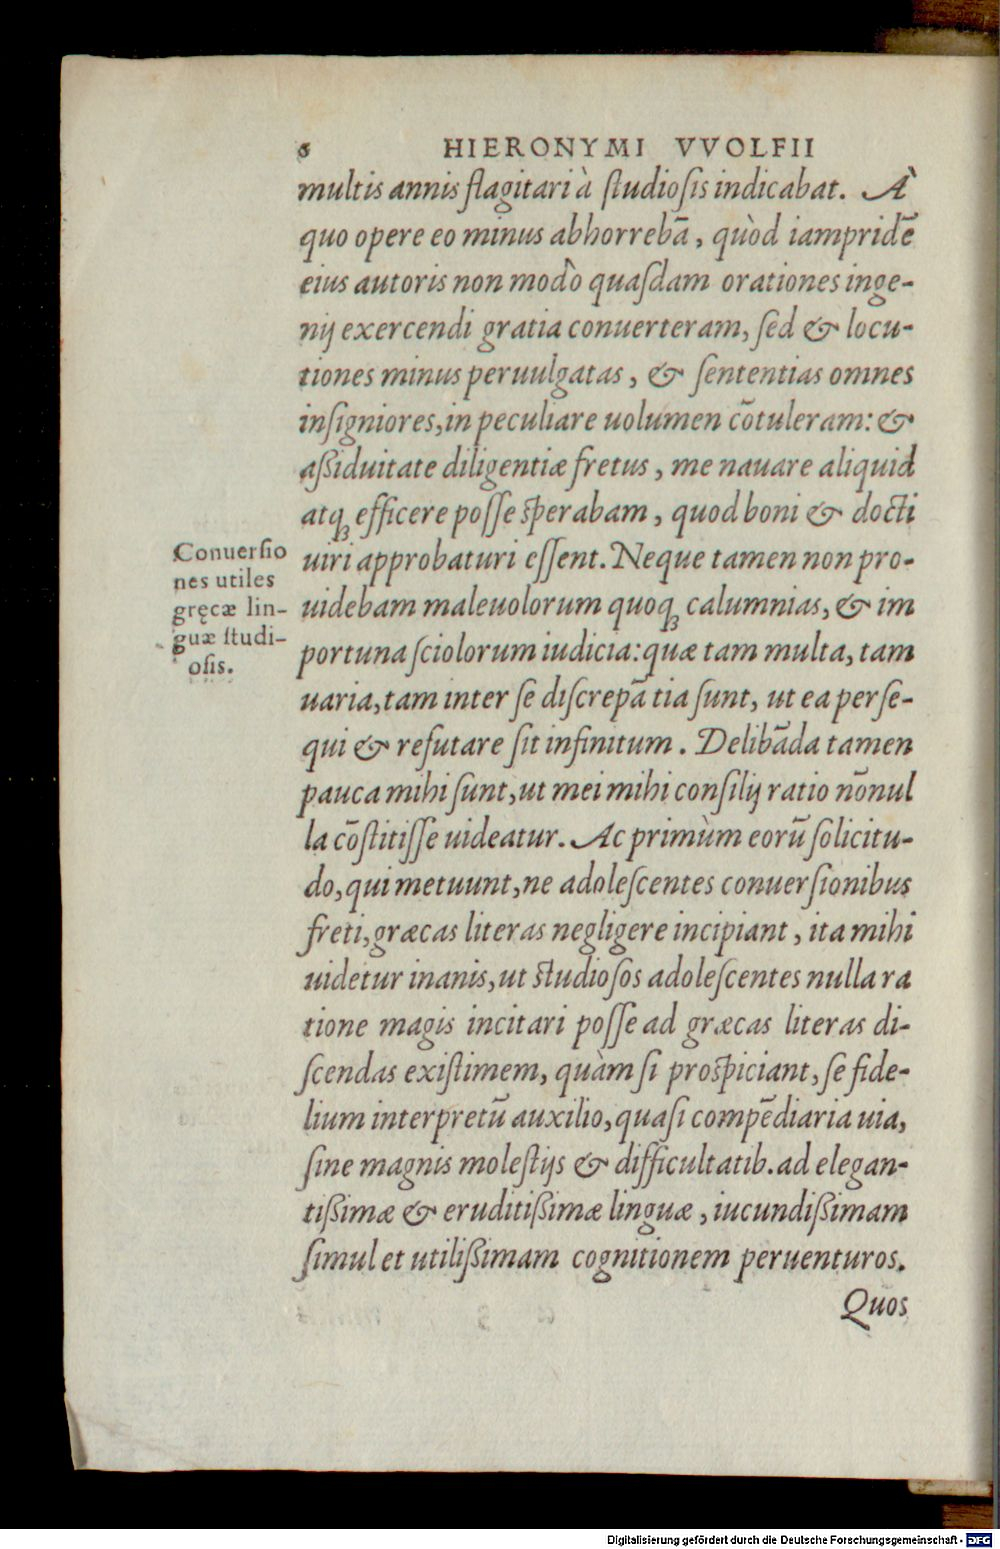 6 HIERONYMI VVOLFII
multis annis flagitari à ſtudioſis indicabat. À
quo opere eo minus abhorrebā, quòd iampridē
eius autoris non modò quaſdam orationes inge-
nij exercendi gratia conuerteram, ſed & locu-
tiones minus peruulgatas, & ſententias omnes
inſigniores, in peculiare uolumen cōtuleram: &
aßiduitate diligentiæ fretus, me nauare aliquid
atq; efficere poſſe ſperabam, quod boni & docti
uiri approbaturi eſſent. Neque tamen non pro-
uidebam maleuolorum quoq; calumnias, & im
portuna ſciolorum iudicia: quæ tam multa, tam
uaria, tam inter ſe diſcrepātia ſunt, ut ea perſe-
qui & refutare ſit infinitum. Delibāda tamen
pauca mihi ſunt, ut mei mihi conſilij ratio nōnul
la cōſtitiſſe uideatur. Ac primùm eorū ſolicitu-
do, qui metuunt, ne adoleſcentes conuerſionibus
freti, græcas literas negligere incipiant, ita mihi
uidetur inanis, ut ſtudioſos adoleſcentes nulla ra
tione magis incitari poſſe ad græcas literas di-
ſcendas exiſtimem, quàm ſi proſpiciant, ſe fide-
lium interpretū auxilio, quaſi compēdiaria uia,
ſine magnis moleſtijs & difficultatib. ad elegan-
tißimæ & eruditißimæ linguæ, iucundißimam
ſimul et utilißimam cognitionem peruenturos.
Quos
Conuerſio
nes utiles
gręcæ lin-
guæ ſtudi-
oſis.
Digitalisierung gefördert durch die Deutsche Forschungsgemeinschaft - DFG